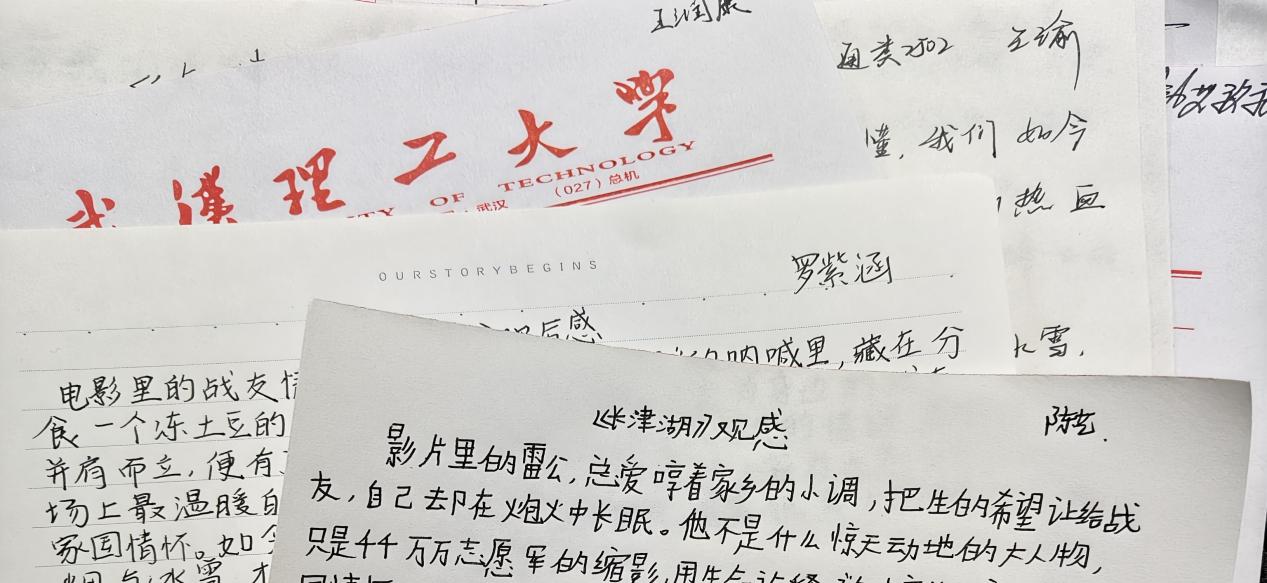 王润康
通类2502 王瑜
武漢理工大學
OF TECHNOLOGY
武汉
(027)总机
懂,我们如今
热血
OURSTORYBEGINS
罗紫涵
后感
呐喊里,藏在分
雪,
电影里的战友情
食一个冻土豆的
并肩而立,便有
场上最温暖的
家国情怀。如今
《长津湖》观感
陈艺.
影片里的雷公,总爱哼着家乡的小调,把生的希望让给战
友,自己却在炮火中长眠。他不是什么惊天动地的大人物,
只是千千万万志愿军的缩影,用生命